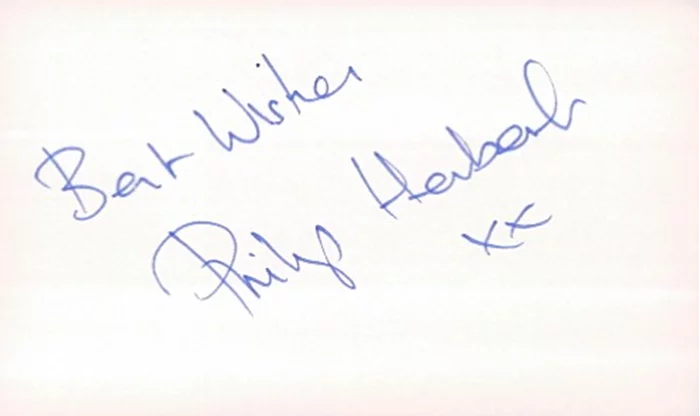 Best Wishes
Philip
xx